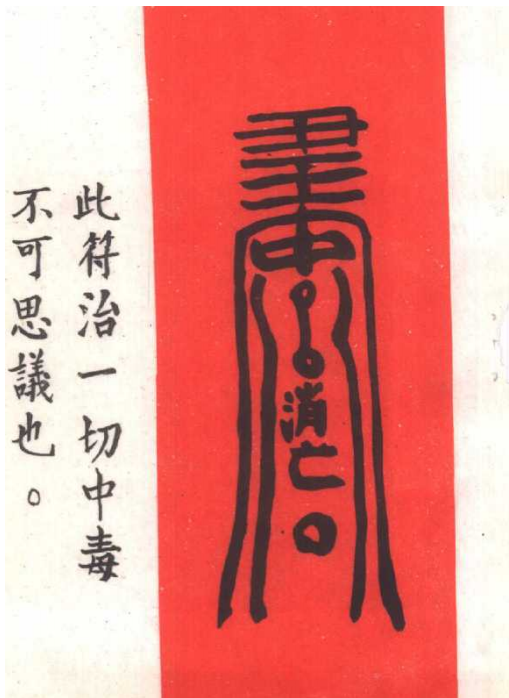 此符治一切中毒
不可思議也。
消亡